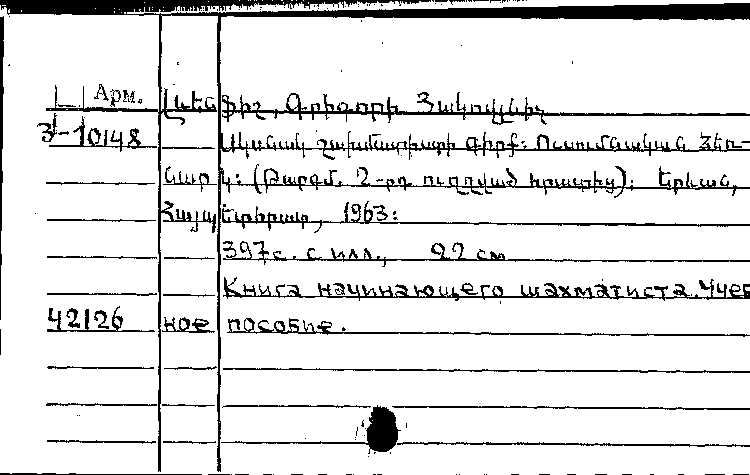 Арм. Լևենֆիշ, Գրիգորի Յակովլևիչ
3-10148 Սկսնակ շախմատիստի գիրք: Ուսումնական ձեռ-
նարկ: (Թարգմ. 2-րդ ուղղված հրատից): Երևան,
Հայպետհրատ, 1963:
397 с. с илл., 22 см
Книга начинающего шахматиста. Учеб
42126 ное пособие.